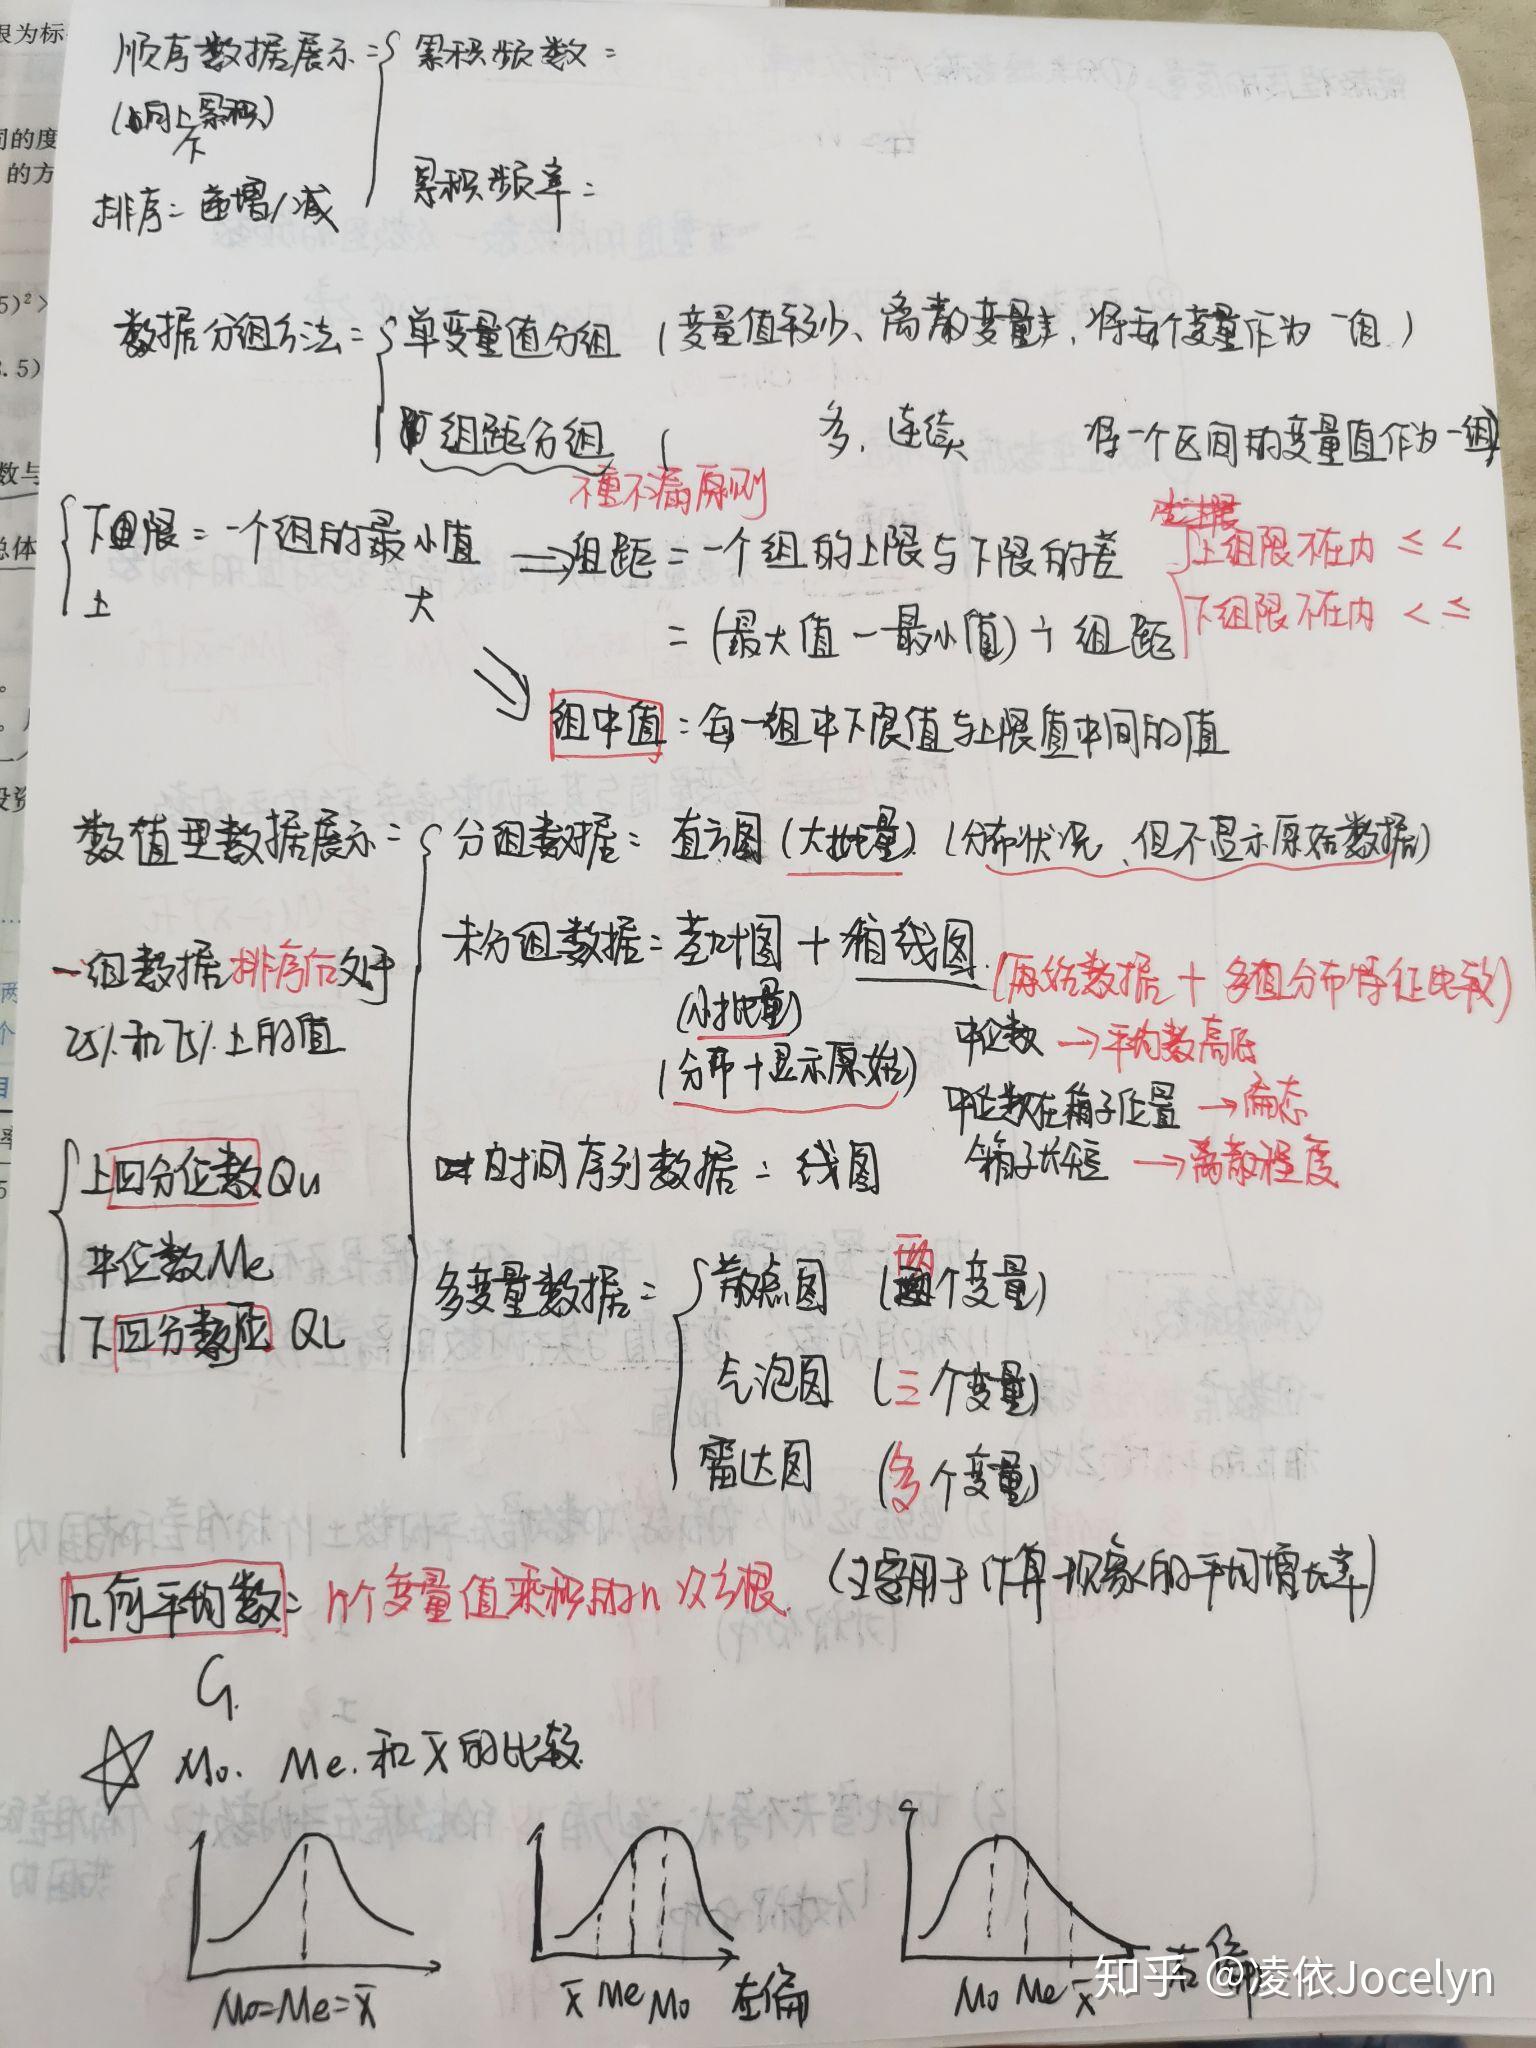 顺序数据展示={ 累积频数=
(向上累积)
下
累积频率=
排序=递增/减
数据分组方法={ 单变量值分组 (变量值较少、离散变量,将每个变量作为一组)
组距分组 ( 多、连续 将一个区间的变量值作为一组)
不重不漏原则
下限=一个组的最小值 ⇒ 组距=一个组的上限与下限的差
上 大
上组限不在内 ≤ <
下组限不在内 < ≤
=(最大值-最小值)÷组距
组中值=每一组中下限值与上限值中间的值
数值型数据展示={ 分组数据=直方图(大批量)(分布状况、但不显示原始数据)
未分组数据=茎叶图+箱线图 (原始数据+多组分布特征比较)
(小批量)
(分布+显示原始)
中位数→平均数高低
中位数在箱子位置→偏态
箱子长短→离散程度
一组数据排序后处于
25%和75%上的值
时间序列数据=线图
上四分位数QU
中位数Me
下四分数位QL
多变量数据={ 散点图 (两个变量)
气泡图 (三个变量)
雷达图 (多个变量)
几何平均数=n个变量值乘积的n次方根 (主要用于计算现象的平均增长率)
G
☆ Mo、Me、和x̄的比较
Mo=Me=x̄
x̄ Me Mo 左偏
Mo Me x̄ 右偏
知乎 @凌依Jocelyn